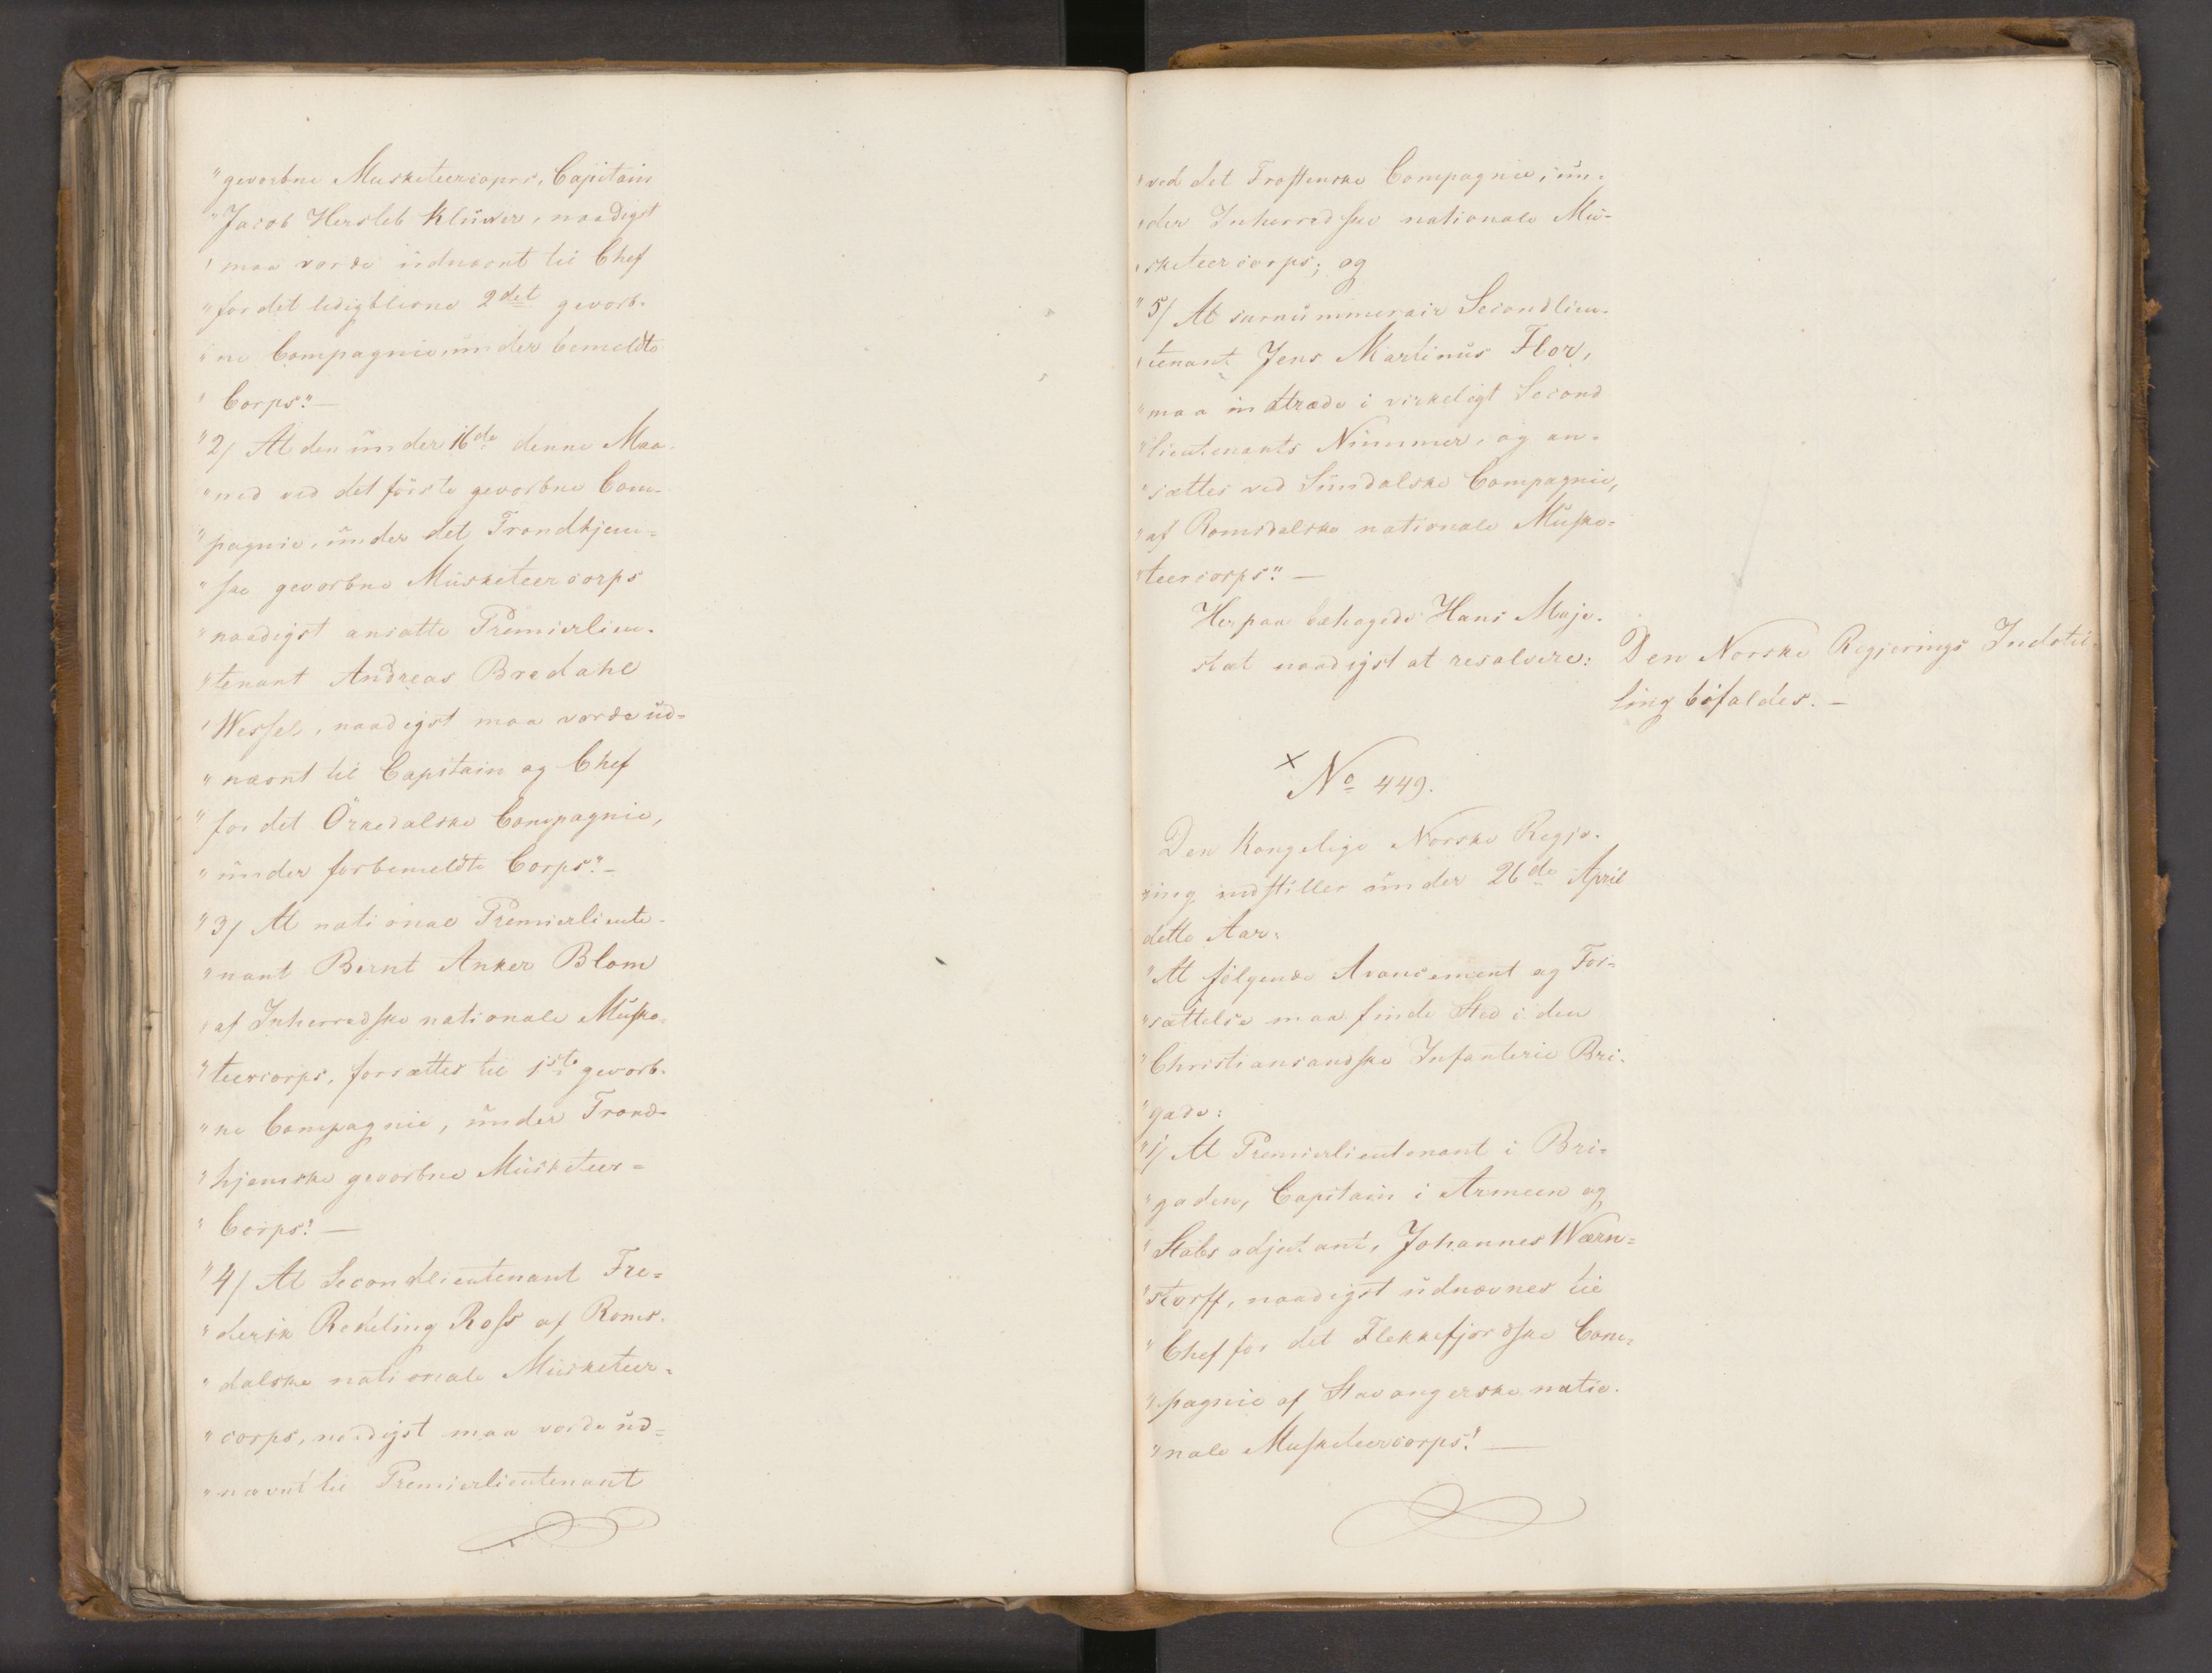 "gevorbne Musketeercoprs, Capitain
"Jacob Hersleb Klüwer, naadigst
"maa vorde üdnævnt til Chef
"for det ledigblevne 2det gevorb-
"ne Compagnie ünder bemeldte
"Corps." —
"2/ At den ünder 16de denne Maa-
"ned ved det förste gevorbne Com-
"pagnie, ünder det Trondhjem-
"ske gevorbne Müsketeercorps
"naadigst ansatte Premierlieu-
"tenant Andreas Bredahl
"Wessel, naadigst maa vorde üd-
"nævnt til Capitain og Chef
"for det Örkedalske Compagnie,
"ünder forbemeldte Corps." —
"3/ At national Premierlieute-
"nant Bernt Anker Blom
"af Inherredske nationale Müske-
"teercorps, forsættes til 1ste gevorb-
"ne Compagnie, ünder Trond-
"hjemske gevorbne Müsketeer=
"Corps." —
"4/ At Secondlieutenant Fre=
"derik Redeling Ross af Roms-
"dalske nationale Müsketeer-
"corps, nadigst maa vorde üd=
"nævnt til Premierlieutenant
"ved det Frostenske Compagnie, ün-
"der Inherredske nationale Mü-
"sketeercorps; og
"5/ At surnümmerair Secondlieu-
"tenant Jens Martinüs Flor,
"maa indtræde i virkeligt Second
"lieutenants Nümmer, og an-
"sættes ved Sündalske Compagnie,
"af Romsdalske nationale Müske-
"teercorps." —
Herpaa behagede Hans Maje-
stæt naadigst at resolvere:
Den Norske Regjerings Indstil-
ling bifaldes. —
× No 449.
Den Kongelige Norske Regje-
ring indstiller ünder 26de April
dette Aar:
"At fölgende Avancement og For=
"sættelse maa finde Sted i den
"Christiansandske Infanterie Bri-
"gade:
"1/ At Premierlieutenant i Bri-
"gaden, Capitain i Armeen og
"Stabsadjutant, Johannes Wærn=
"storff, naadigst üdnævnes til
"Chef for det Flekkefjordske Com-
"pagnie af Stavangerske natio-
"nale Musketeercorps." —